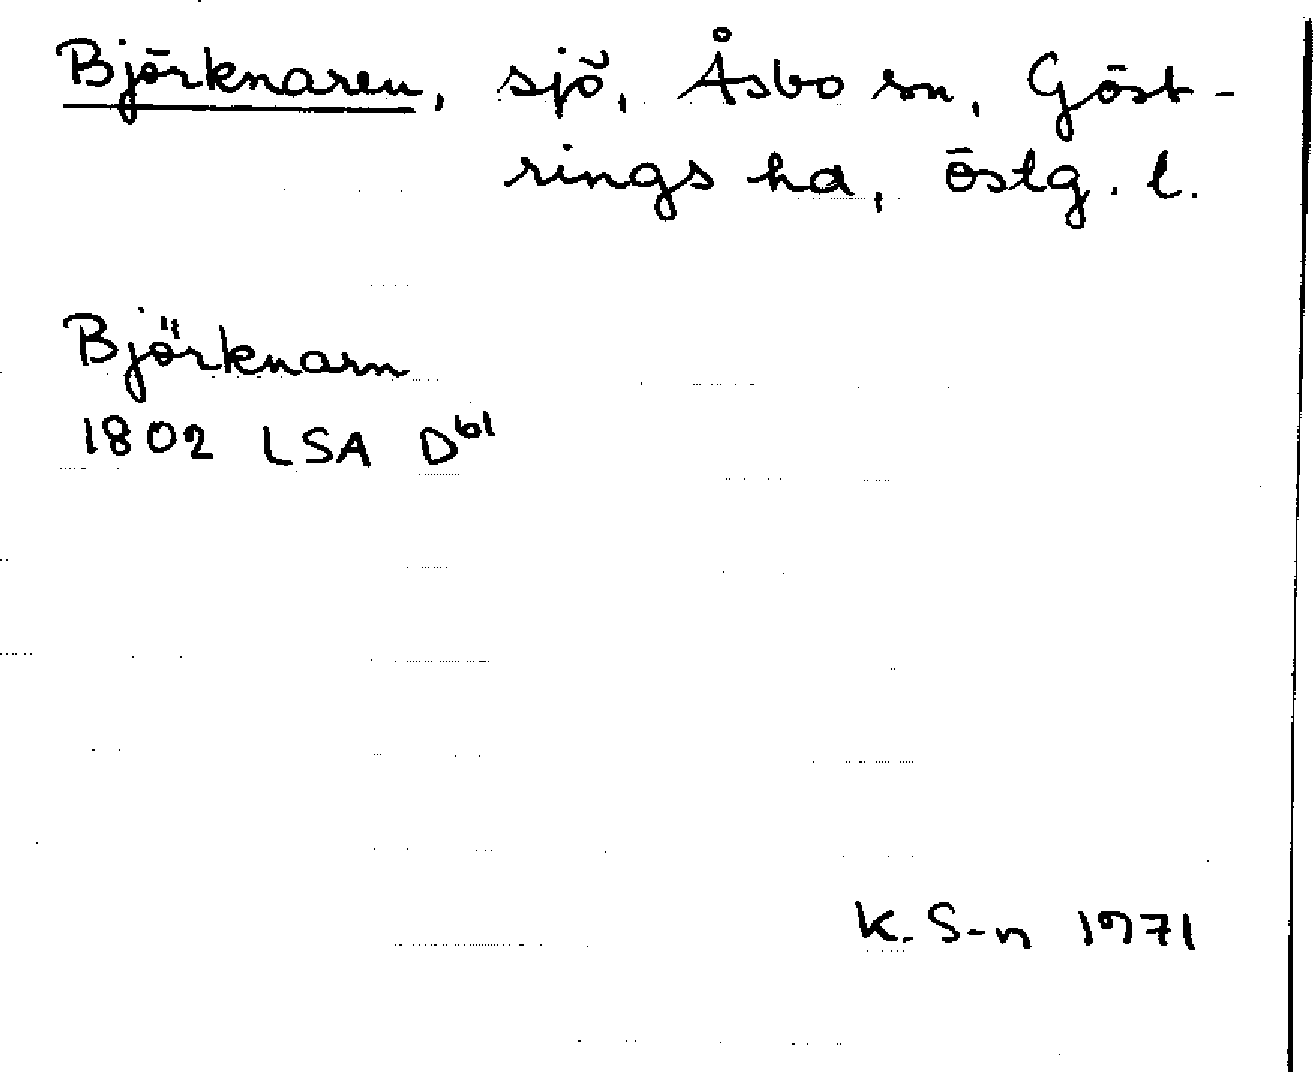 Björknaren, sjö, Åsbo sn, Göst-
rings hd, Östg. l.
Björknarn
1802 LSA D61
K. S-n 1971